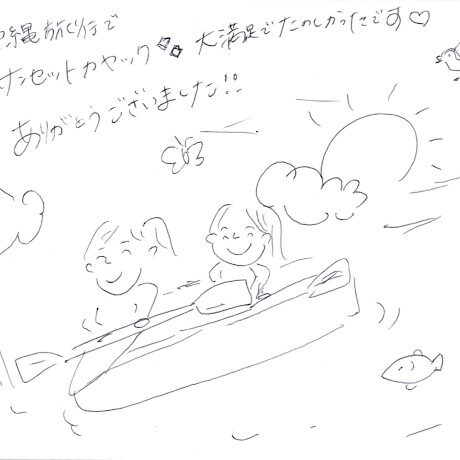 沖縄旅行で
サンセットカヤック 大満足でたのしかったです♡
ありがとうございました!!